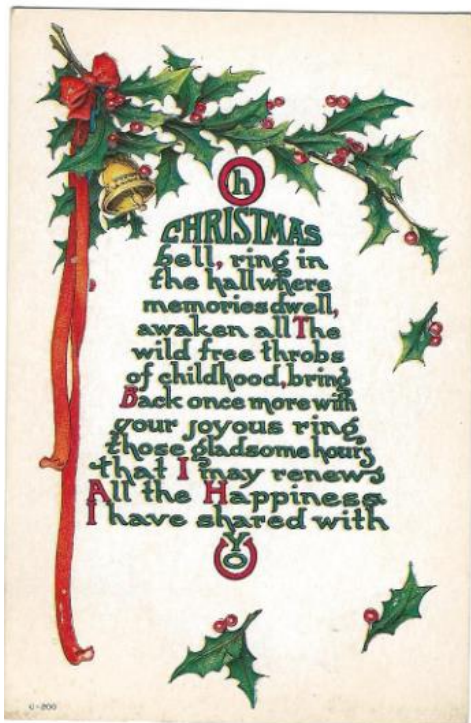 Oh
CHRISTMAS
bell, ring in
the hall where
memories dwell,
awaken all The
wild free throbs
of childhood, bring
Back once more with
your joyous ring,
those gladsome hours
that I may renew
All the Happiness
I have shared with
YOU